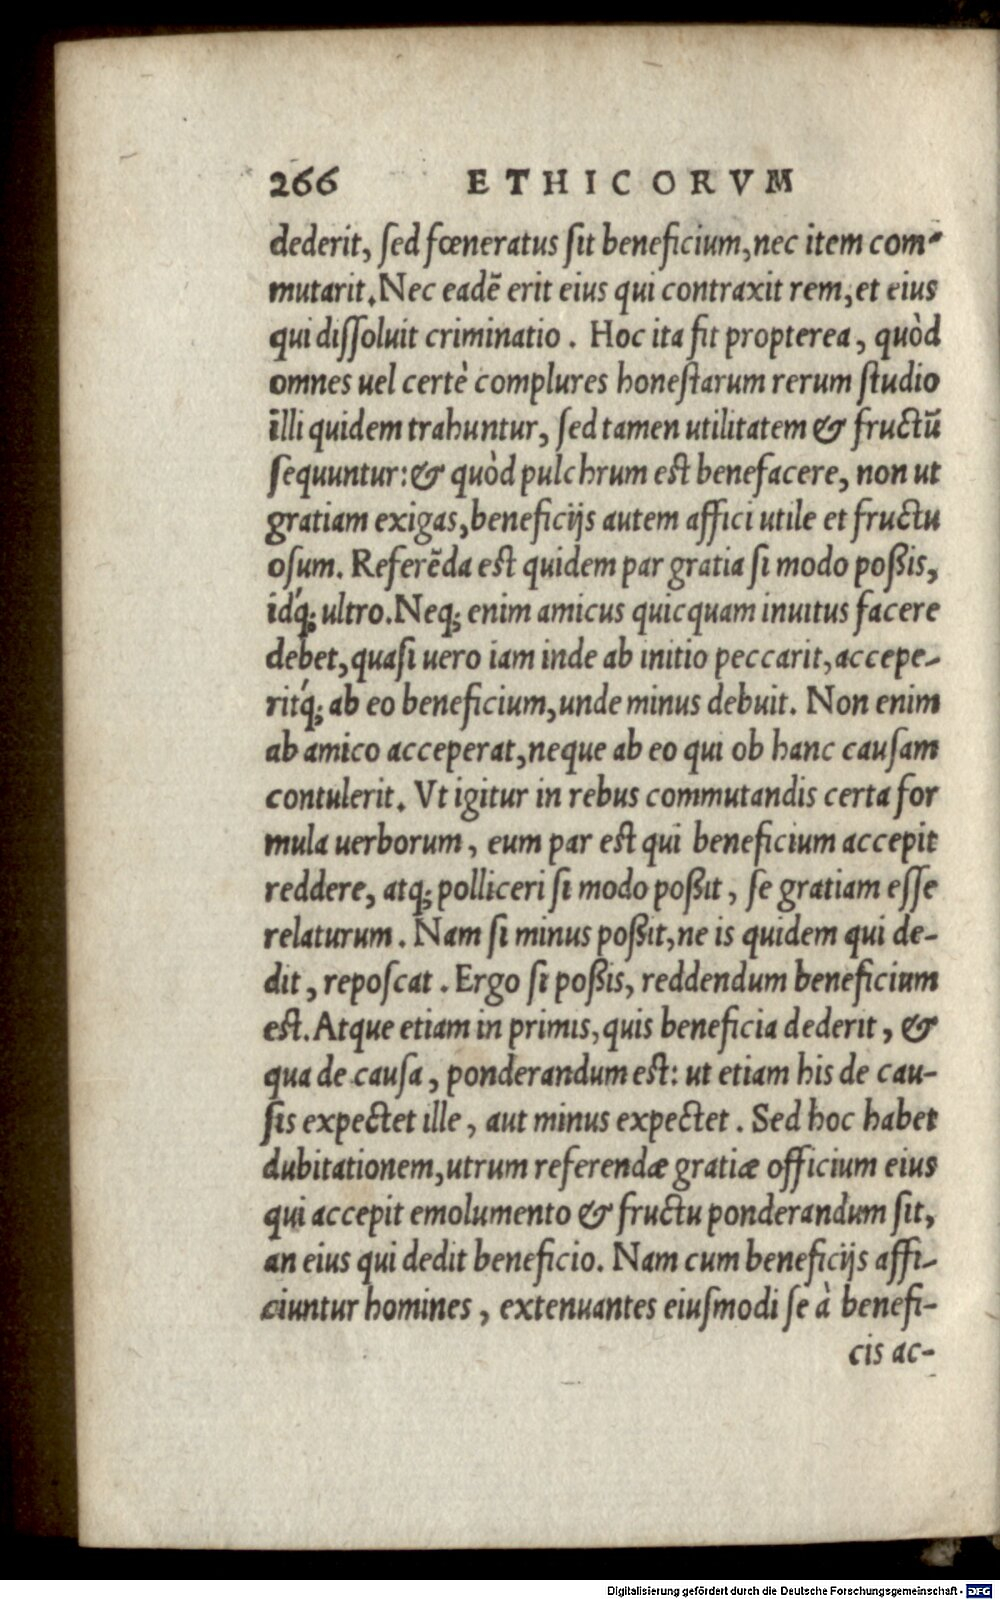 266 ETHICORVM
dederit, ſed fœneratus ſit beneficium, nec item com-
mutarit. Nec eadē erit eius qui contraxit rem, et eius
qui diſſoluit criminatio. Hoc ita fit propterea, quòd
omnes uel certè complures honeſtarum rerum ſtudio
illi quidem trahuntur, ſed tamen utilitatem & fructū
ſequuntur: & quòd pulchrum eſt benefacere, non ut
gratiam exigas, beneficijs autem affici utile et fructu
oſum. Referēda eſt quidem par gratia ſi modo poßis,
idq́; ultro. Neq; enim amicus quicquam inuitus facere
debet, quaſi uero iam inde ab initio peccarit, accepe-
ritq́; ab eo beneficium, unde minus debuit. Non enim
ab amico acceperat, neque ab eo qui ob hanc cauſam
contulerit. Vt igitur in rebus commutandis certa for
mula uerborum, eum par eſt qui beneficium accepit
reddere, atq; polliceri ſi modo poßit, ſe gratiam eſſe
relaturum. Nam ſi minus poßit, ne is quidem qui de-
dit, repoſcat. Ergo ſi poßis, reddendum beneficium
eſt. Atque etiam in primis, quis beneficia dederit, &
qua de cauſa, ponderandum eſt: ut etiam his de cau-
ſis expectet ille, aut minus expectet. Sed hoc habet
dubitationem, utrum referendæ gratiæ officium eius
qui accepit emolumento & fructu ponderandum ſit,
an eius qui dedit beneficio. Nam cum beneficijs affi-
ciuntur homines, extenuantes eiuſmodi ſe à benefi-
cis ac-
Digitalisierung gefördert durch die Deutsche Forschungsgemeinschaft - DFG